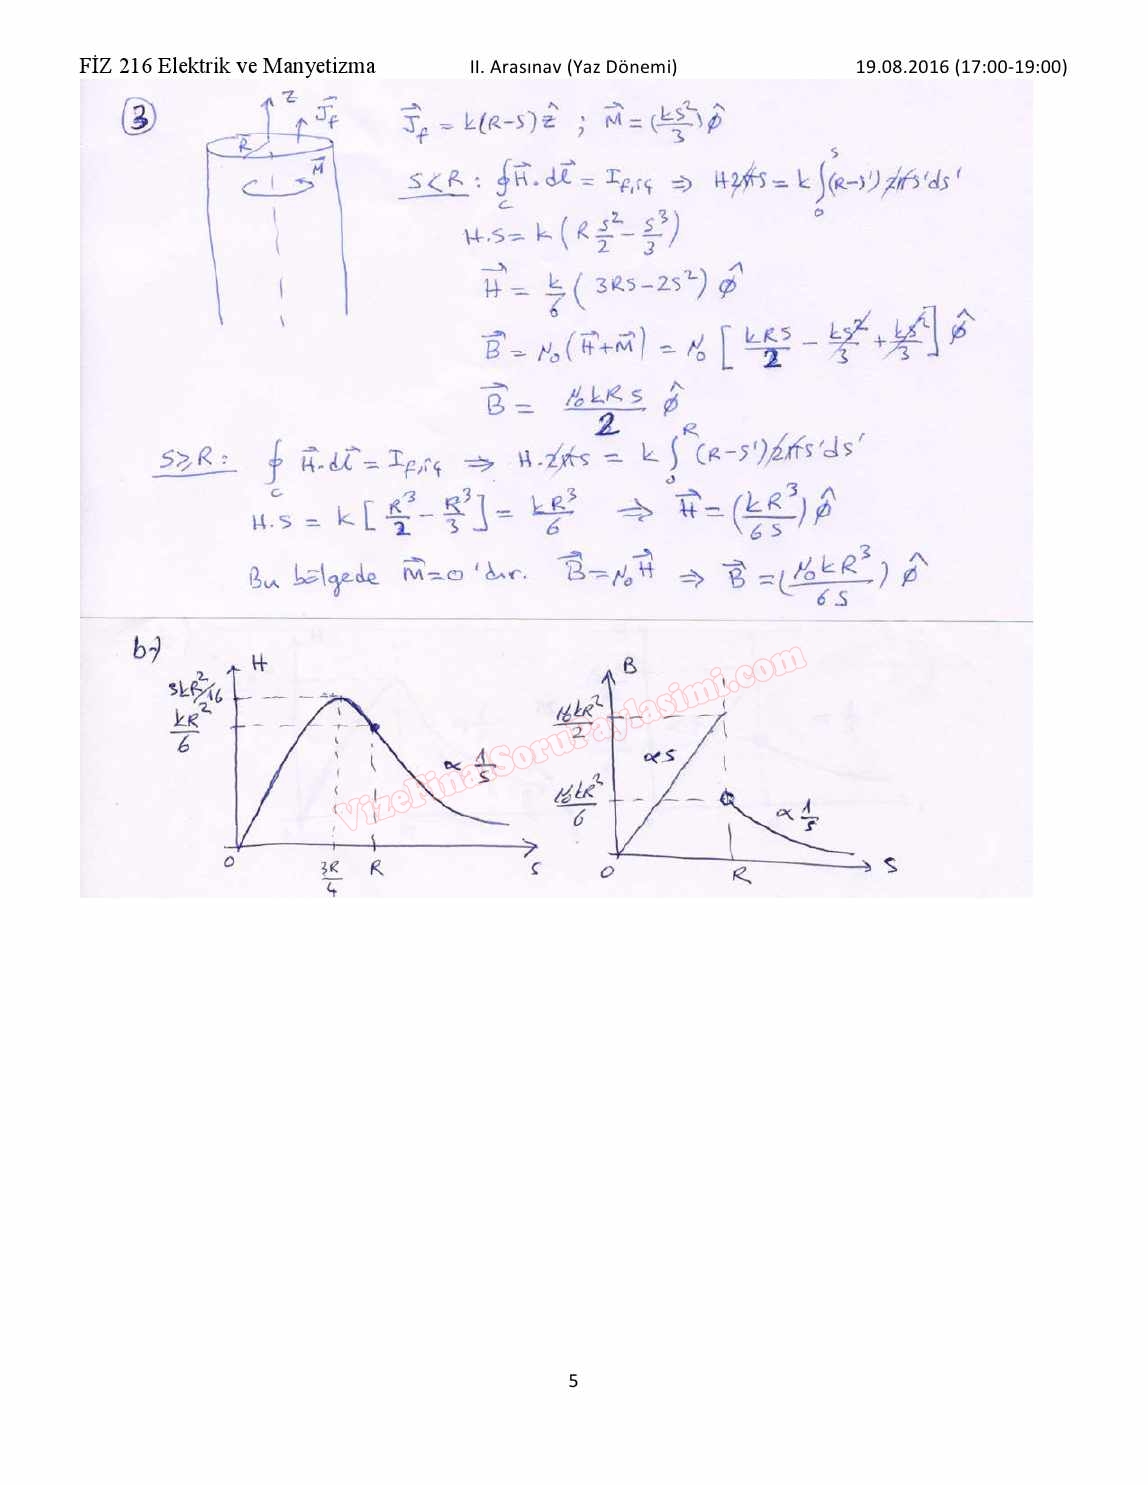 FİZ 216 Elektrik ve Manyetizma II. Arasınav (Yaz Dönemi) 19.08.2016 (17:00-19:00)
3
z J⃗_f R M⃗
J⃗_f = k(R-s)ẑ ; M⃗ = (ks²/3) φ̂
s<R : ∮_C H⃗.dl⃗ = I_f,iç ⇒ H2πs = k∫₀ˢ(R-s')2πs'ds'
H.s = k (R s²/2 - s³/3)
H⃗ = k/6 (3Rs-2s²) φ̂
B⃗ = μ₀(H⃗+M⃗) = μ₀ [kRs/2 - ks²/3 + ks²/3] φ̂
B⃗ = μ₀kRs/2 φ̂
s⩾R: ∮_C H⃗.dl⃗ = I_f,iç ⇒ H.2πs = k∫₀ᴿ(R-s')2πs'ds'
H.s = k [R³/2 - R³/3] = kR³/6 ⇒ H⃗ = (kR³/6s) φ̂
Bu bölgede M⃗=0'dır. B⃗=μ₀H⃗ ⇒ B⃗ = (μ₀kR³/6s) φ̂
b-)
H
3kR²/16
kR²/6
∝ 1/s
0 3R/4 R s
B
μ₀kR²/2
∝s
μ₀kR²/6
∝ 1/s
0 R s
VizeFinalSoruPaylasimi.com
5